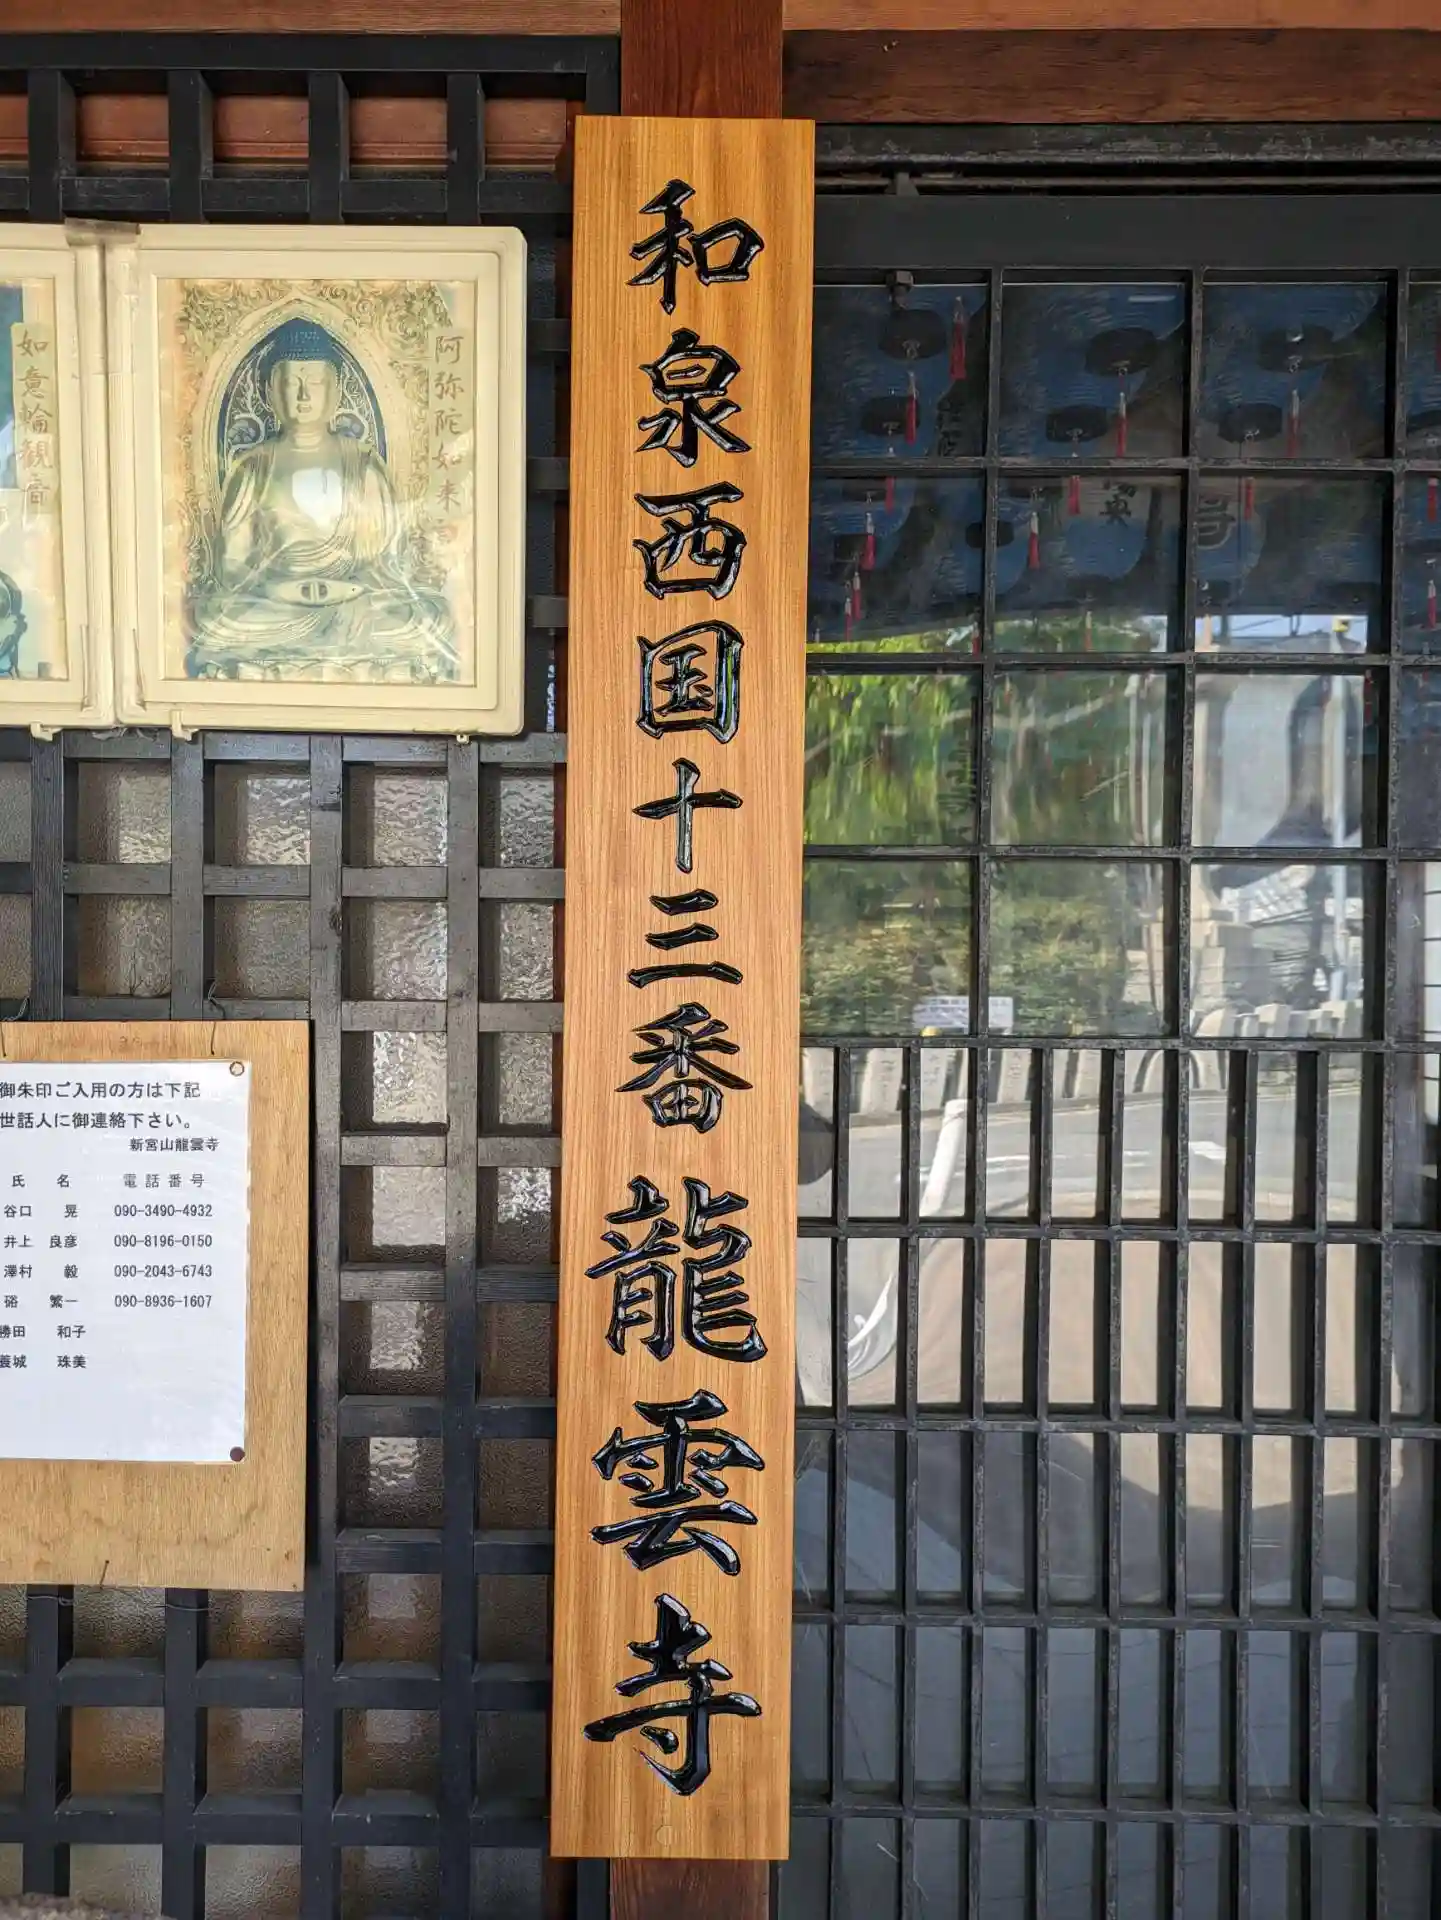 和泉西国十三番 龍雲寺
阿弥陀如来
如意輪観音
御朱印ご入用の方は下記
世話人に御連絡下さい。
新宮山龍雲寺
氏 名 電話番号
谷口 晃 090-3490-4932
井上 良彦 090-8196-0150
澤村 毅 090-2043-6743
硲 繁一 090-8936-1607
勝田 和子
養城 珠美